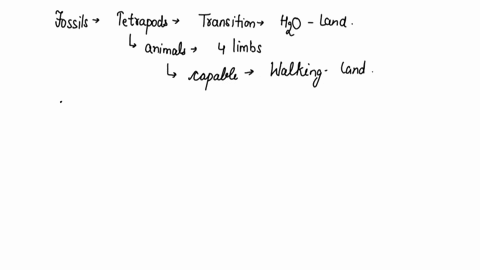 Fossils → Tetrapods → Transition → H2O - Land.
↳ animals → 4 limbs
↳ capable → Walking - land.